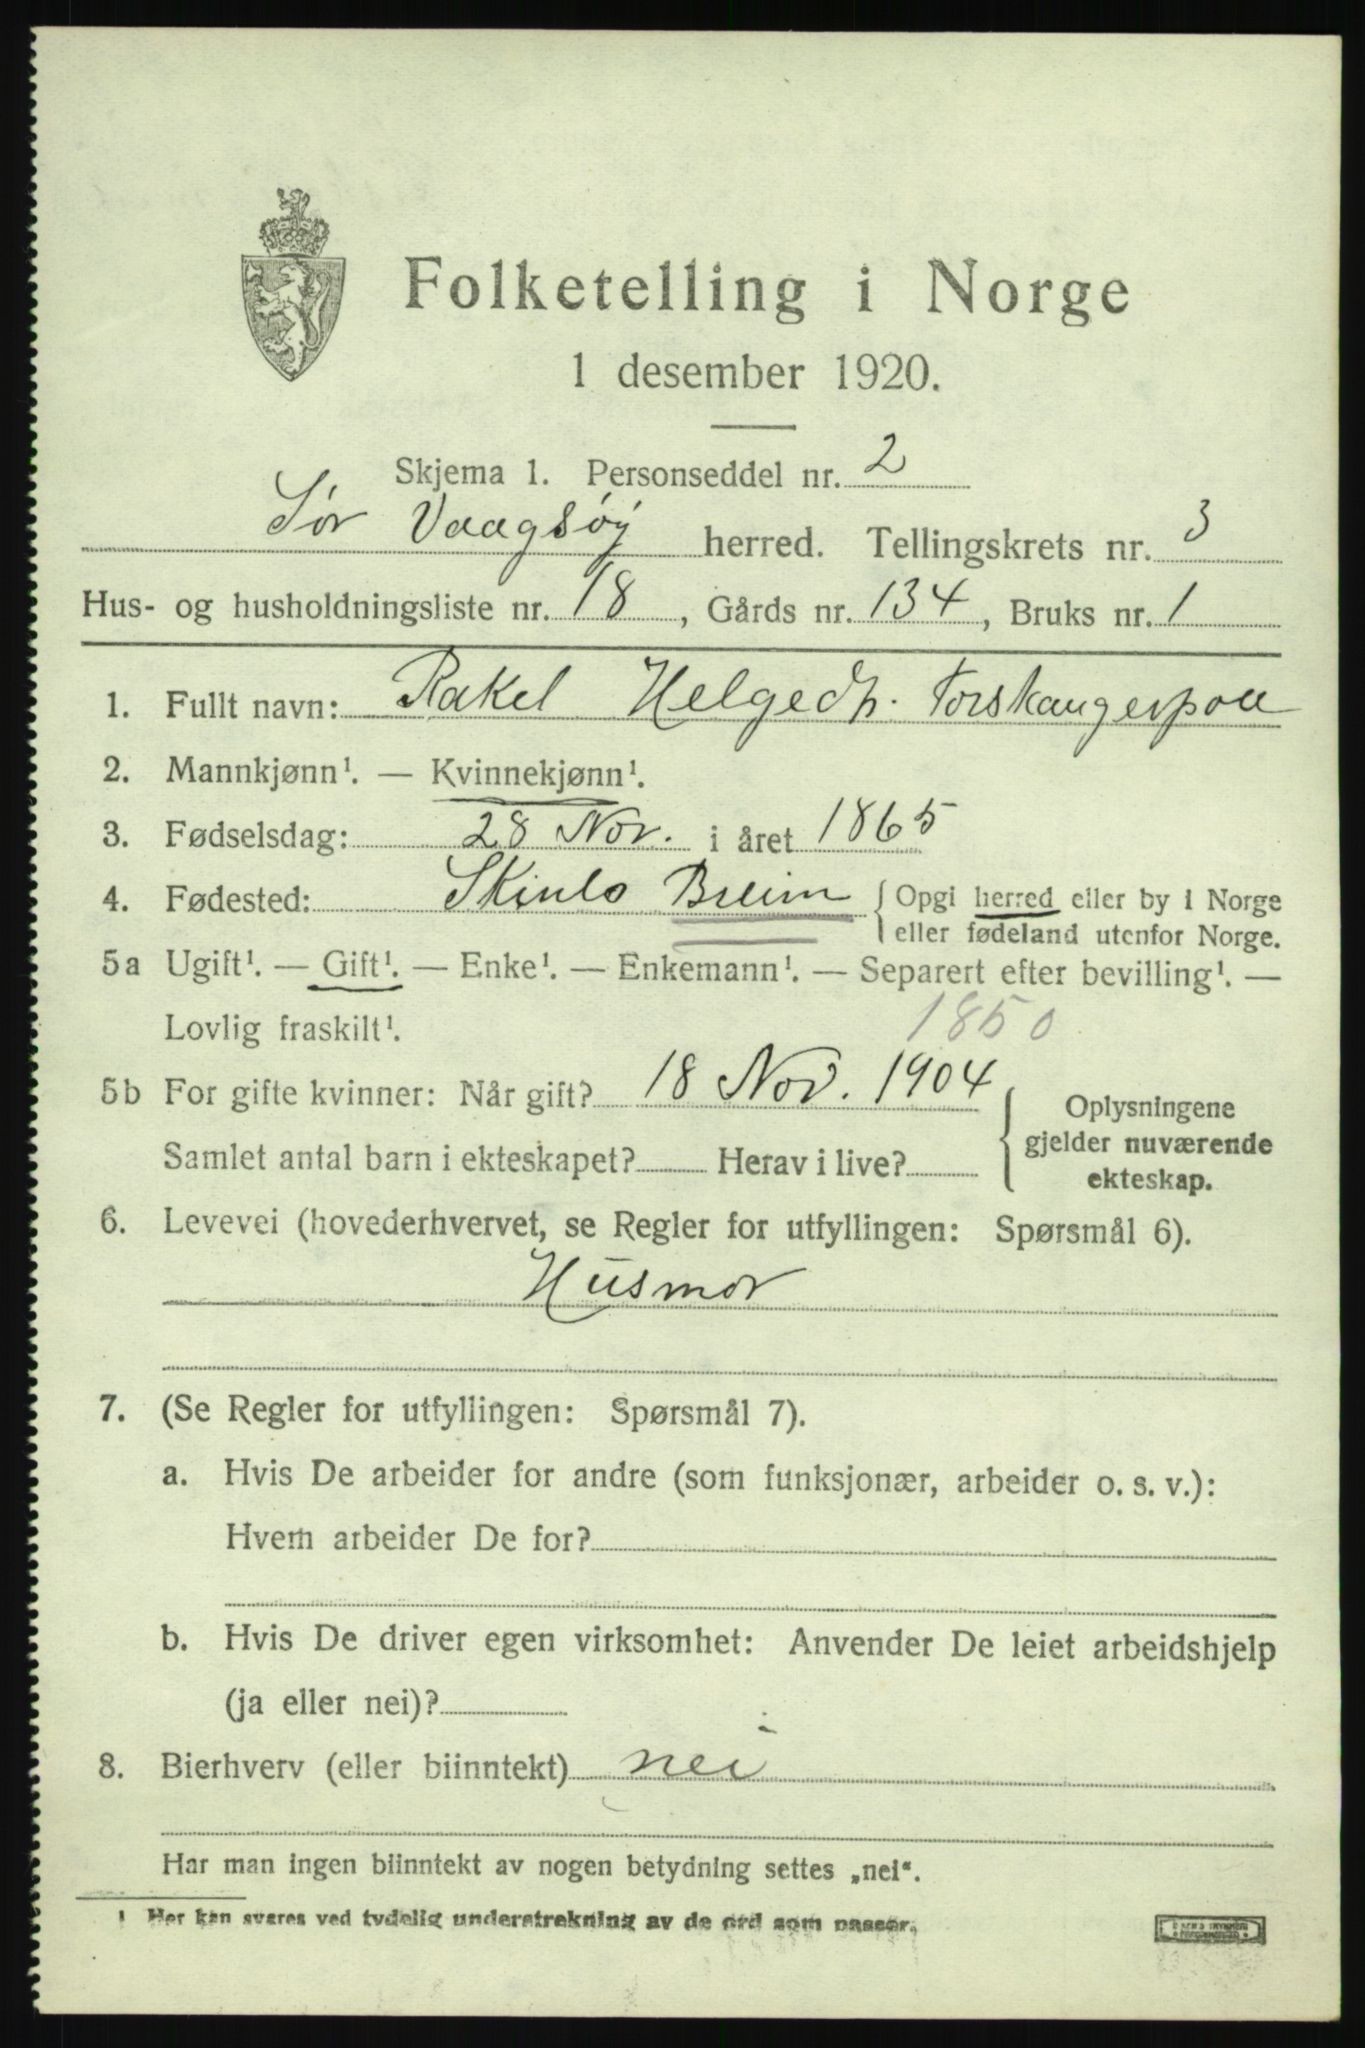 Folketelling i Norge
1 desember 1920.
Skjema 1. Personseddel nr. 2
Sør Vaagsøy herred. Tellingskrets nr. 3
Hus- og husholdningsliste nr. 18, Gårds nr. 134, Bruks nr. 1
1. Fullt navn: Rakel Helgedp. Torskangerpoll
2. Mannkjønn¹. — Kvinnekjønn¹.
3. Fødselsdag: 28 Nov. i året 1865
4. Fødested: Skinlo Breim { Opgi herred eller by i Norge
eller fødeland utenfor Norge.
5a Ugift¹. — Gift¹. — Enke¹. — Enkemann¹. — Separert efter bevilling¹. —
Lovlig fraskilt¹. 1850
5b For gifte kvinner: Når gift? 18 Nov. 1904 { Oplysningene
gjelder nuværende
Samlet antal barn i ekteskapet? Herav i live?
ekteskap.
6. Levevei (hovederhvervet, se Regler for utfyllingen: Spørsmål 6).
Husmor
7. (Se Regler for utfyllingen: Spørsmål 7).
a. Hvis De arbeider for andre (som funksjonær, arbeider o. s. v.):
Hvem arbeider De for?
b. Hvis De driver egen virksomhet: Anvender De leiet arbeidshjelp
(ja eller nei)?
8. Bierhverv (eller biinntekt) nei
Har man ingen biinntekt av nogen betydning settes „nei“.
1 Her kan svares ved tydelig understrekning av de ord som passer.